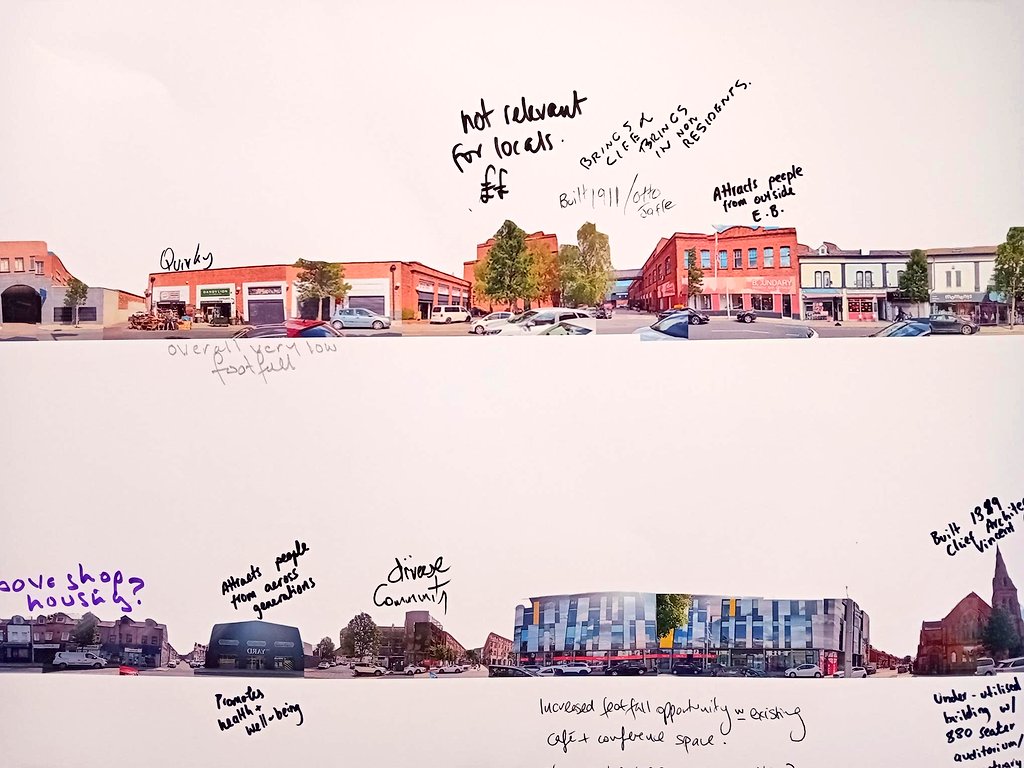 not relevant
for locals.
££
BRINGS
LIFE &
BRINGS
IN NON
RESIDENTS.
Built 1911 / Otto
Jaffe
Attracts people
from outside
E.B.
Quirky
DANDELION
BOUNDARY
overall very low
footfall
Built 1889
Chief Archite
Vincent
above shop
housing?
Attracts people
from across
generations
diverse
Community
YARD
Promotes
health +
well-being
Increased footfall opportunity w existing
café + conference space.
Under-utilised
building w/
880 seater
auditorium/